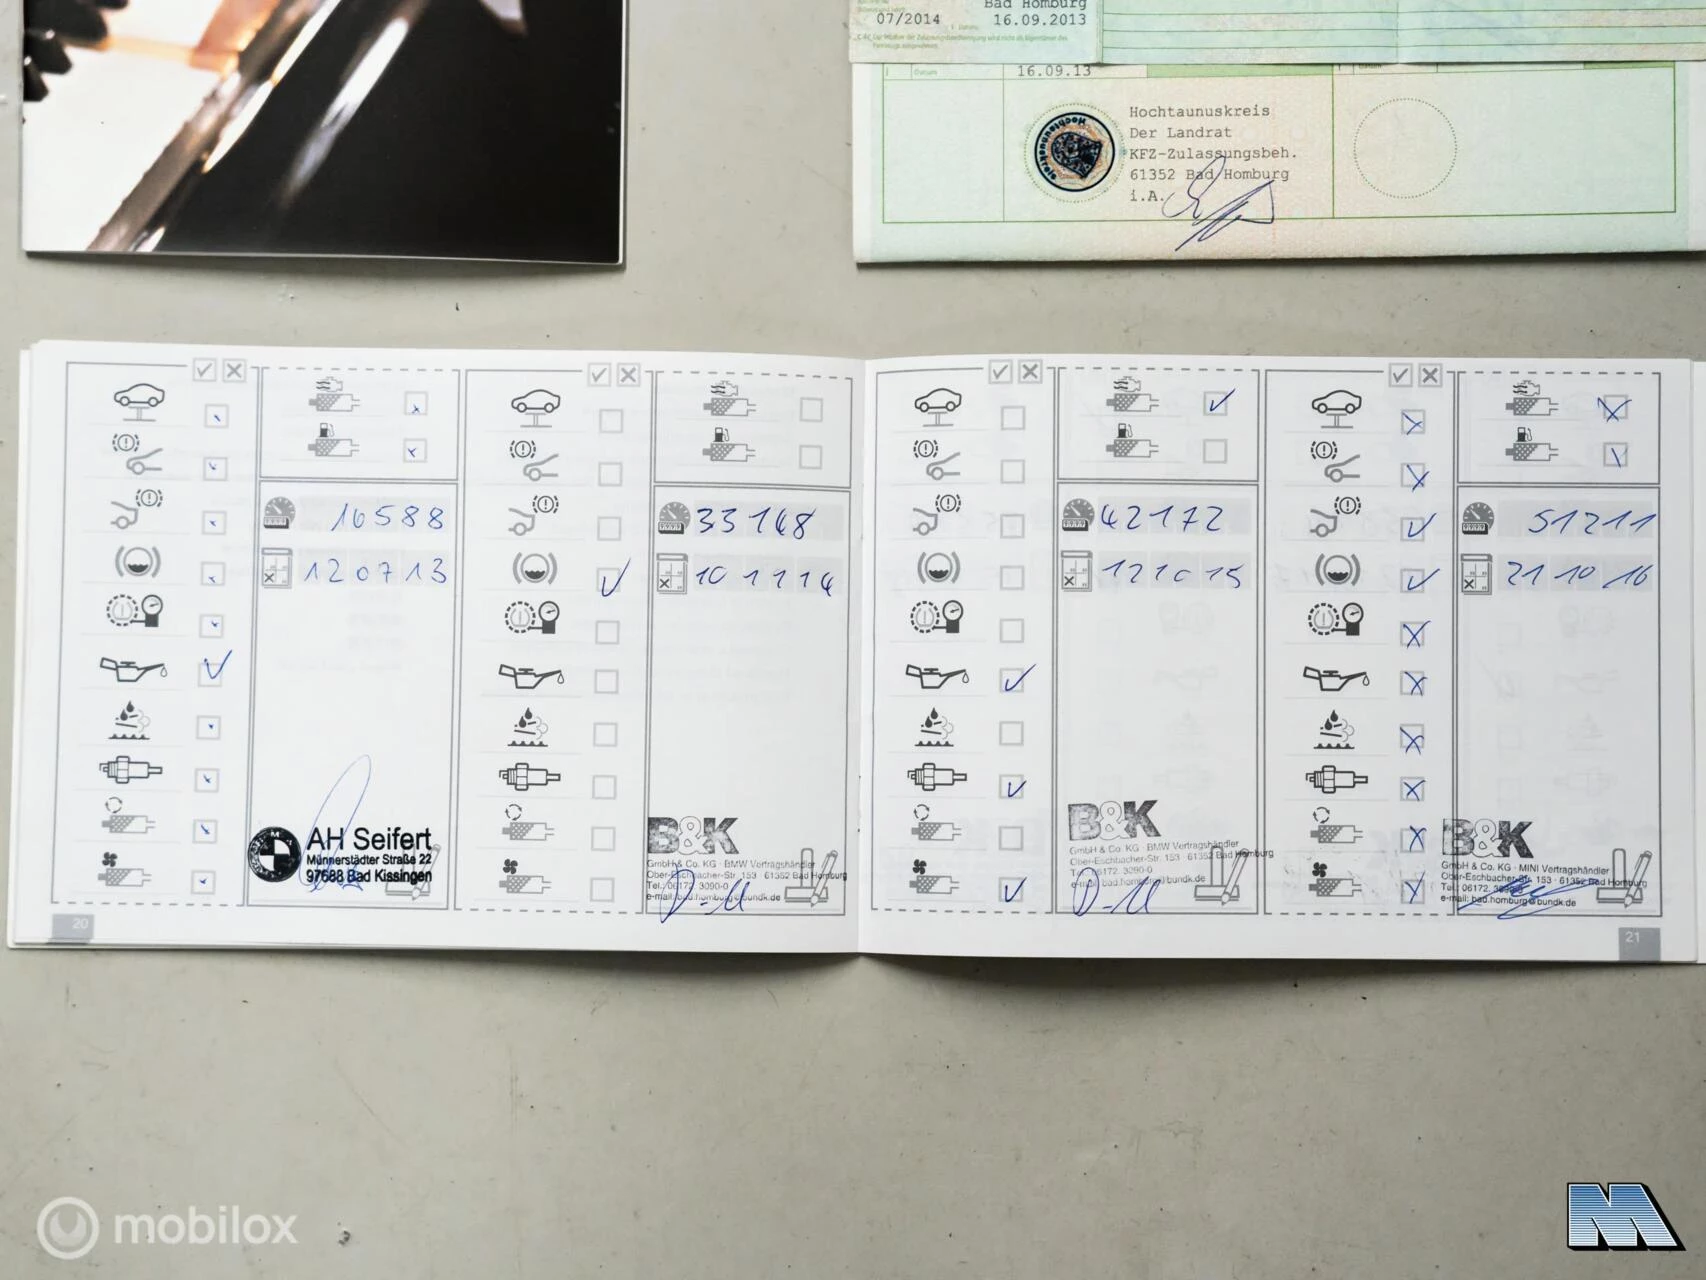 Bad Homburg
07/2014
16.09.2013
Datum
16.09.13
Hochtaunuskreis
Hochtaunuskreis
Der Landrat
KFZ-Zulassungsbeh.
61352 Bad Homburg
i.A.
16588
120713
AH Seifert
Münnerstädter Straße 22
97688 Bad Kissingen
33148
10 11 14
B&K
GmbH & Co. KG · BMW Vertragshändler
Ober-Eschbacher-Str. 153 · 61352 Bad Homburg
Tel.: 06172. 3090-0
e-mail: bad.homburg@bundk.de
20
42172
121015
B&K
GmbH & Co. KG · BMW Vertragshändler
Ober-Eschbacher-Str. 153 · 61352 Bad Homburg
Tel.: 06172. 3090-0
e-mail: bad.homburg@bundk.de
51211
21 10 16
B&K
GmbH & Co. KG · MINI Vertragshändler
Ober-Eschbacher-Str. 153 · 61352 Bad Homburg
Tel.: 06172. 3090-0
e-mail: bad.homburg@bundk.de
21
mobilox
M